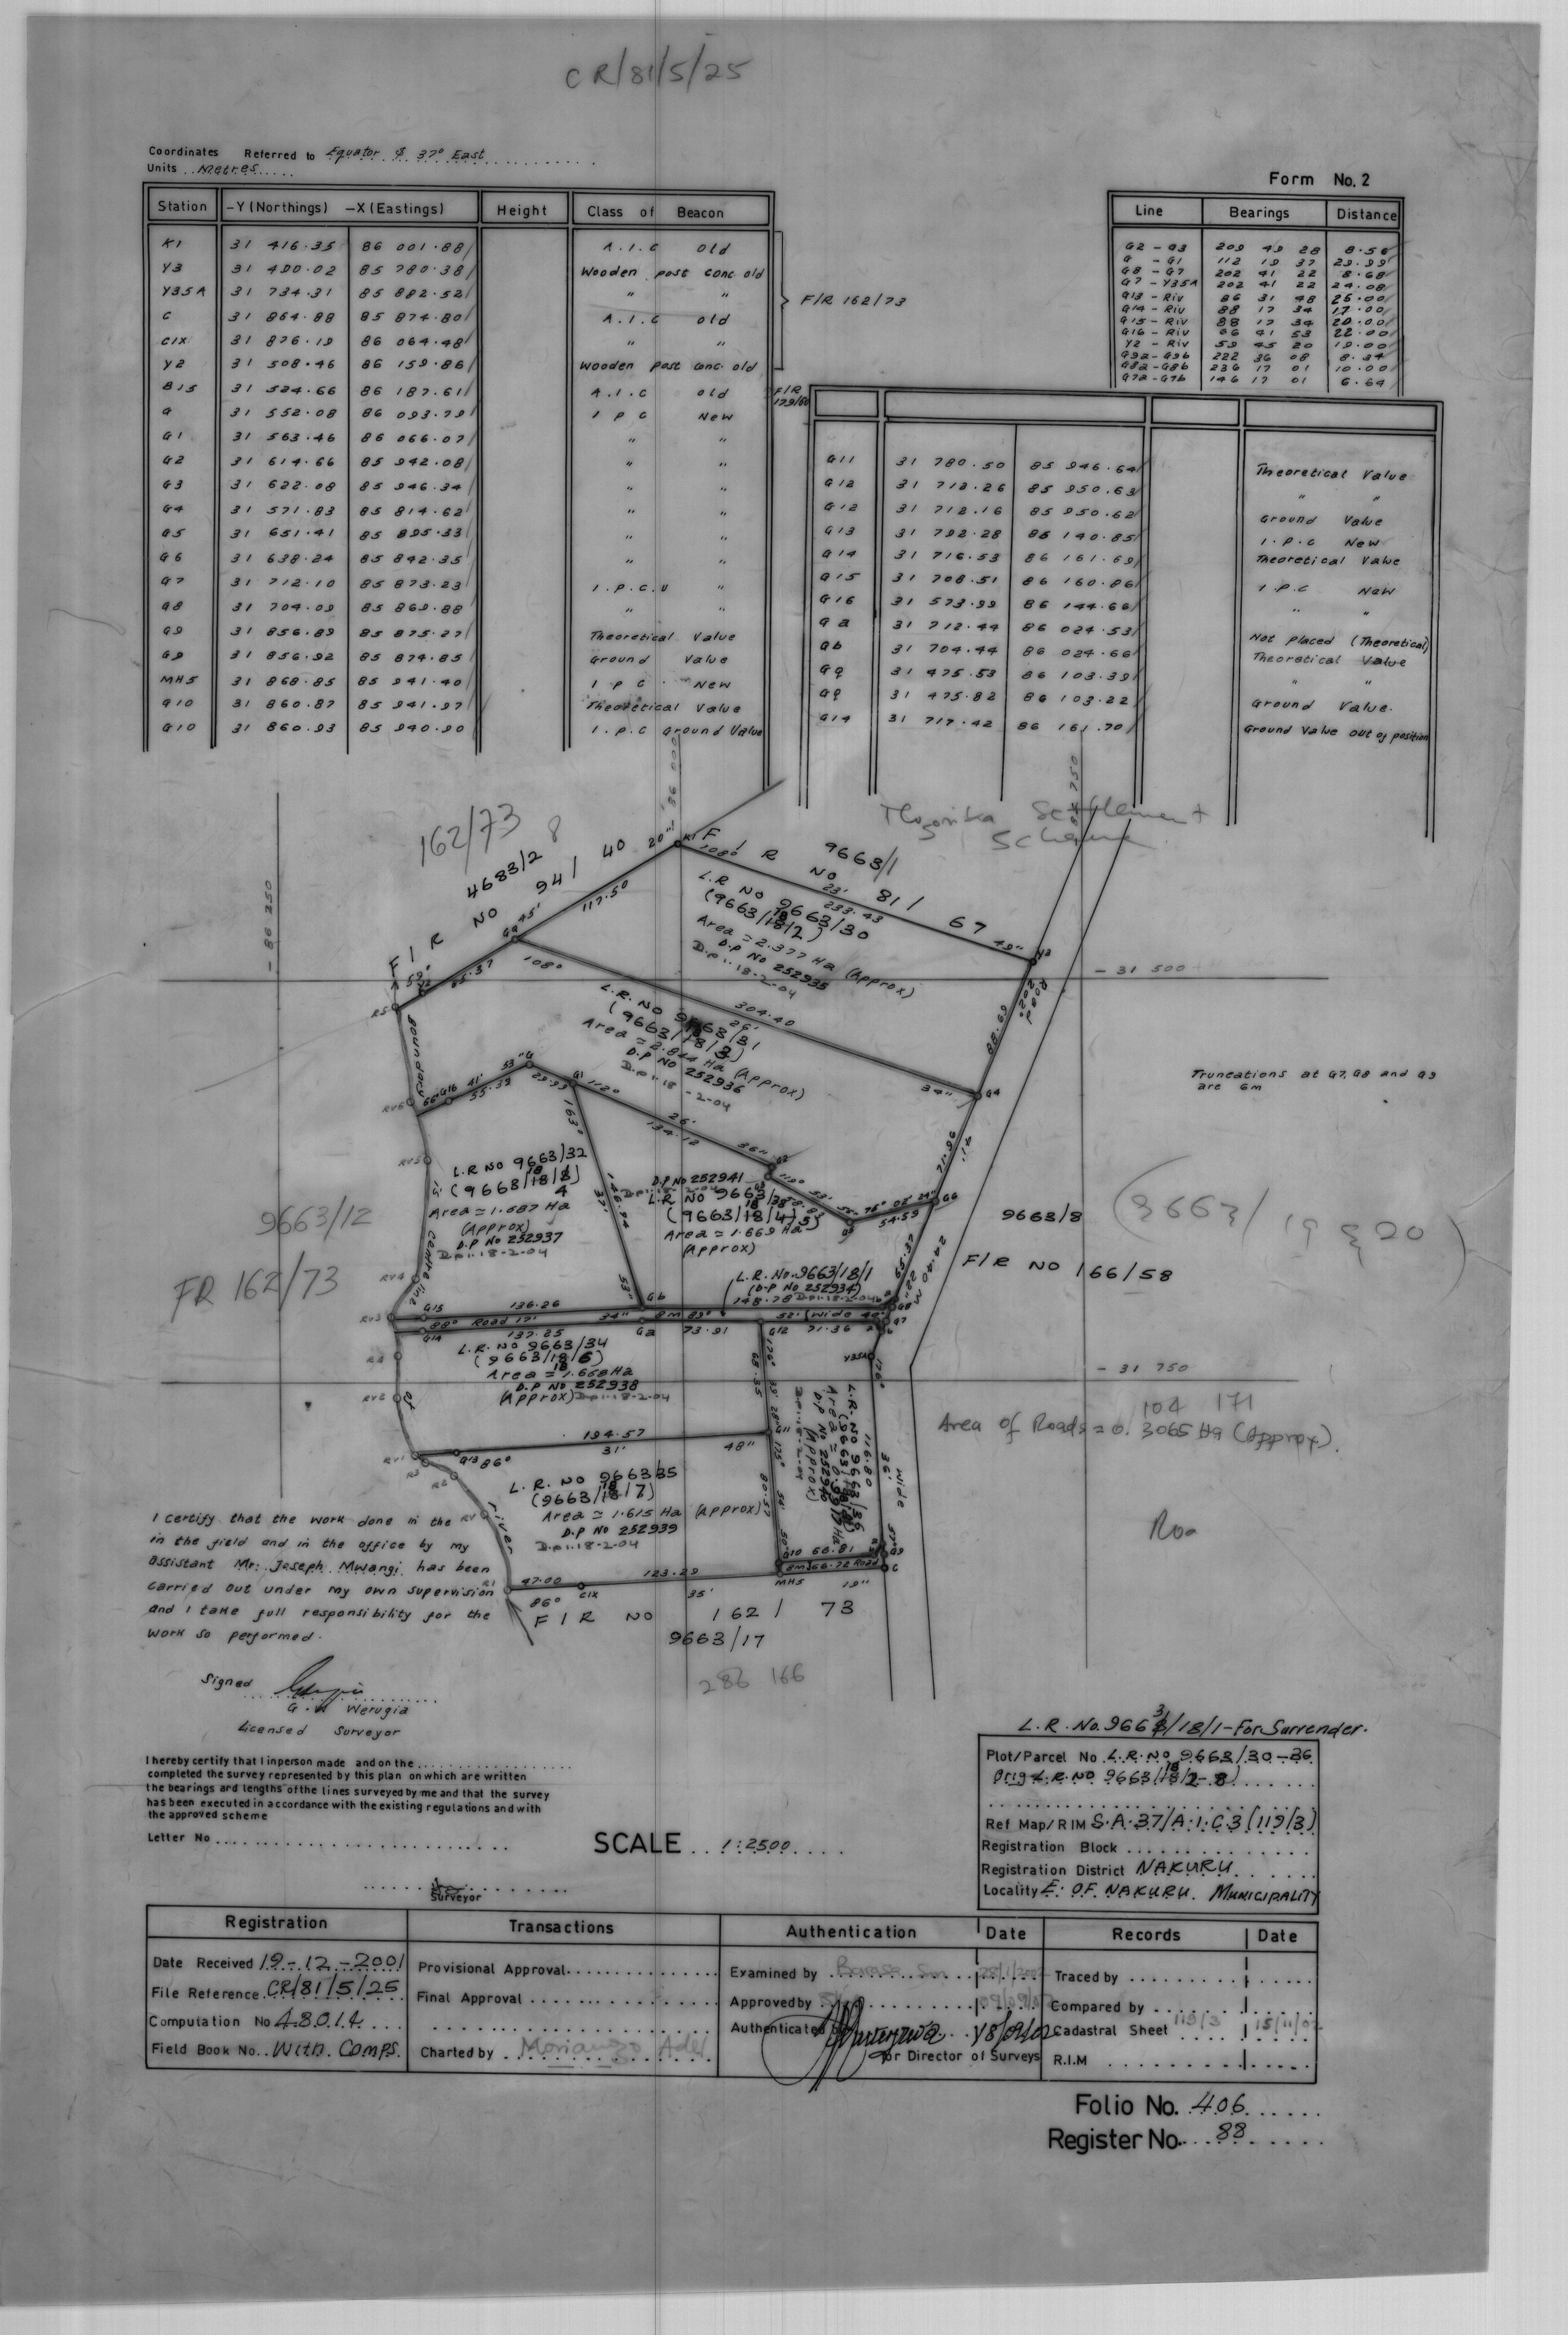 CR/81/5/25
Coordinates Referred to Equator & 37° East
Units Metres
Form No. 2
Station -Y (Northings) -X (Eastings) Height Class of Beacon
K1 31 416.35 86 001.88 A.I.C old
Y3 31 490.02 85 780.38 Wooden post conc. old
Y35A 31 734.31 85 882.52 " "
C 31 864.88 85 874.80 A.I.C old
C1X 31 876.19 86 064.48 " "
Y2 31 508.46 86 159.86 Wooden post conc. old
F/R 162/73
B15 31 524.66 86 187.61 A.I.C old
F/R 179/60
G 31 552.08 86 093.79 I P C New
G1 31 563.46 86 066.07 " "
G2 31 614.66 85 942.08 " "
G3 31 622.08 85 946.34 " "
G4 31 571.83 85 814.62 " "
G5 31 651.41 85 895.33 " "
G6 31 638.24 85 842.35 " "
G7 31 712.10 85 873.23 I.P.C.U "
G8 31 704.09 85 869.88 " "
G9 31 856.89 85 875.27 Theoretical Value
G9 31 856.92 85 874.85 Ground Value
MH5 31 868.85 85 941.40 I P C New
G10 31 860.87 85 941.97 Theoretical Value
G10 31 860.93 85 940.90 I.P.C Ground Value
Line Bearings Distance
G2 - G3 209 49 28 8.56
G - G1 112 19 37 29.99
G8 - G7 202 41 22 8.68
G7 - Y35A 202 41 22 24.08
G13 - Riv 86 31 48 25.00
G14 - Riv 88 17 34 17.00
G15 - Riv 88 17 34 20.00
G16 - Riv 66 41 53 22.00
Y2 - Riv 59 45 20 19.00
G9a - G9b 222 36 08 8.34
G8a - G8b 236 17 01 10.00
G7a - G7b 146 17 01 6.64
G11 31 780.50 85 946.64 Theoretical Value
G12 31 712.26 85 950.63 " "
G12 31 712.16 85 950.62 Ground Value
G13 31 792.28 86 140.85 I.P.C New
G14 31 716.53 86 161.69 Theoretical Value
G15 31 708.51 86 160.86 I.P.C New
G16 31 573.99 86 144.66 " "
Ga 31 712.44 86 024.53 Not placed (Theoretical)
Gb 31 704.44 86 024.66 Theoretical Value
Gq 31 475.53 86 103.39 " "
Gq 31 475.82 86 103.22 Ground Value.
G14 31 717.42 86 161.70 Ground Value out of position
162/73
4683/2
F/R NO 941 40
9663/1
F/R NO 81/ 67
Settlement
Scheme
- 86 250
- 86 000
- 31 500
117.50
65.37
233.43
L.R NO 9663/30
(9663/18/2)
Area = 2.377 Ha (Approx)
D.P NO 252935
D.P.1.18-2-04
304.40
88.69
Road
L.R. NO 9663/31
(9663/18/3)
Area = 2.844 Ha (Approx)
D.P NO 252936
D.P.1.18-2-04
Truncations at G7, G8 and G9
are 6m
Boundary is centre line of river
55.39
29.99
134.12
146.94
L.R NO 9663/32
(9663/18/4)
Area = 1.687 Ha
(Approx)
D.P NO 252937
D.P.1.18-2-04
D.P NO 252941
(9663/18/4) 5
Area = 1.669 Ha
(Approx)
54.59
71.96
9663/12
FR 162/73
9663/8
F/R NO 166/58
(9663/19 & 20)
L.R. No. 9663/18/1
(D.P NO 252934)
148.78
136.26
Road
8m Wide
137.25 73.91 71.36
L.R. NO 9663/34
(9663/18/6)
Area = 1.668 Ha
D.P NO 252938
(Approx) D.P.1.18-2-04
- 31 750
104 171
Area of Roads = 0.3065 Ha (Approx).
194.57
L.R. NO 9663/35
(9663/18/7)
Area = 1.615 Ha (Approx)
D.P NO 252939
D.P.1.18-2-04
116.80
Wide
Roa
66.81
8m 66.72 Road
47.00 123.29
C1X MH5
F/R NO 162/ 73
9663/17
286 166
I certify that the work done in the
in the field and in the office by my
assistant Mr. Joseph Mwangi has been
carried out under my own supervision
and I take full responsibility for the
work so performed.
Signed
G. N Werugia
Licensed Surveyor
I hereby certify that I inperson made and on the
completed the survey represented by this plan on which are written
the bearings and lengths of the lines surveyed by me and that the survey
has been executed in accordance with the existing regulations and with
the approved scheme
Letter No
Surveyor
SCALE 1:2500
L.R. No. 9663/18/1 - For Surrender.
Plot/Parcel No L.R. NO 9663/30-36
Orig L.R. NO 9663/18/2-8)
Ref Map/RIM S.A.37/A.1.C3 (119/3)
Registration Block
Registration District NAKURU
Locality E. OF NAKURU. MUNICIPALITY
Registration Transactions Authentication Date Records Date
Date Received 19-12-2001
File Reference CR/81/5/25
Computation No 48014
Field Book No. With. Comps.
Provisional Approval
Final Approval
Charted by
Examined by
Approved by
Authenticated
for Director of Surveys
Traced by
Compared by
Cadastral Sheet 119/3
R.I.M
Folio No. 406
Register No. 88